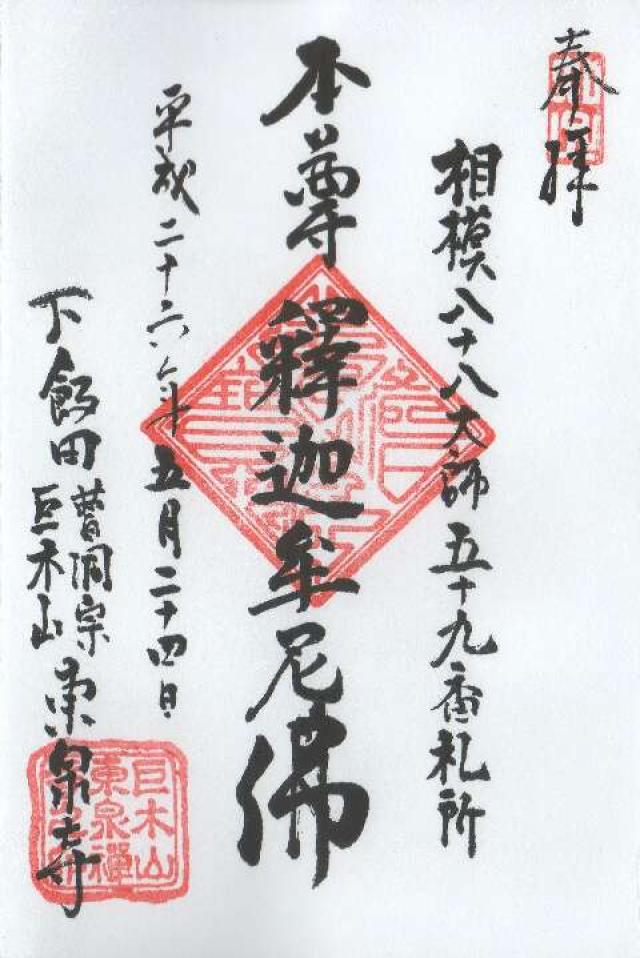 奉拝
相模八十八大師五十九番札所
本尊釋迦牟尼佛
平成二十六年五月二十四日
下飯田曹洞宗巨木山東泉寺
巨木山
東泉禅